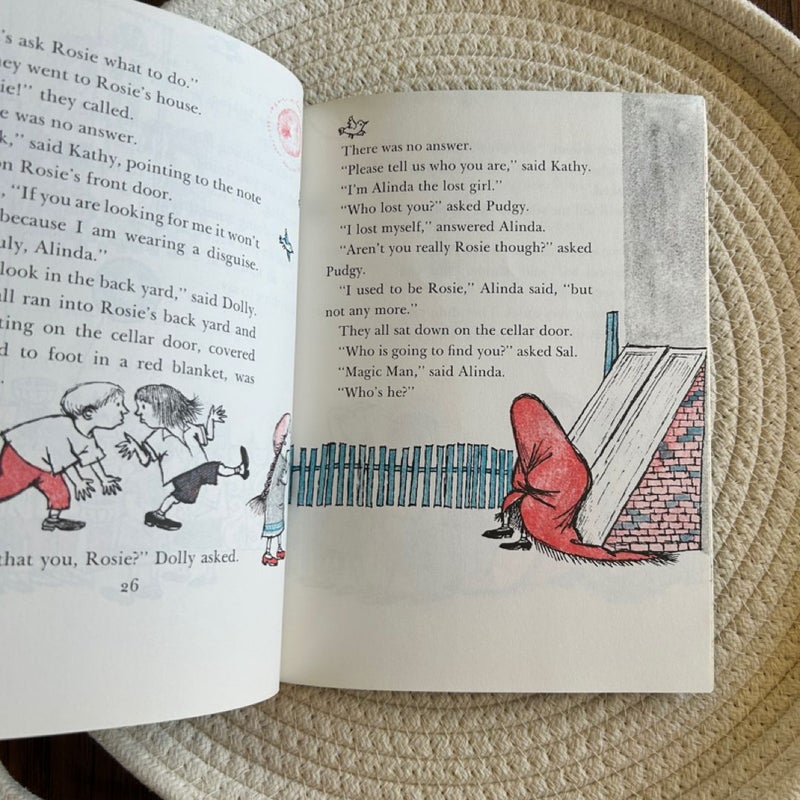 's ask Rosie what to do."
ey went to Rosie's house.
ie!" they called.
e was no answer.
k," said Kathy, pointing to the note
on Rosie's front door.
, "If you are looking for me it won't
because I am wearing a disguise.
uly, Alinda."
look in the back yard," said Dolly.
ll ran into Rosie's back yard and
ting on the cellar door, covered
d to foot in a red blanket, was
.
that you, Rosie?" Dolly asked.
26
There was no answer.
"Please tell us who you are," said Kathy.
"I'm Alinda the lost girl."
"Who lost you?" asked Pudgy.
"I lost myself," answered Alinda.
"Aren't you really Rosie though?" asked
Pudgy.
"I used to be Rosie," Alinda said, "but
not any more."
They all sat down on the cellar door.
"Who is going to find you?" asked Sal.
"Magic Man," said Alinda.
"Who's he?"